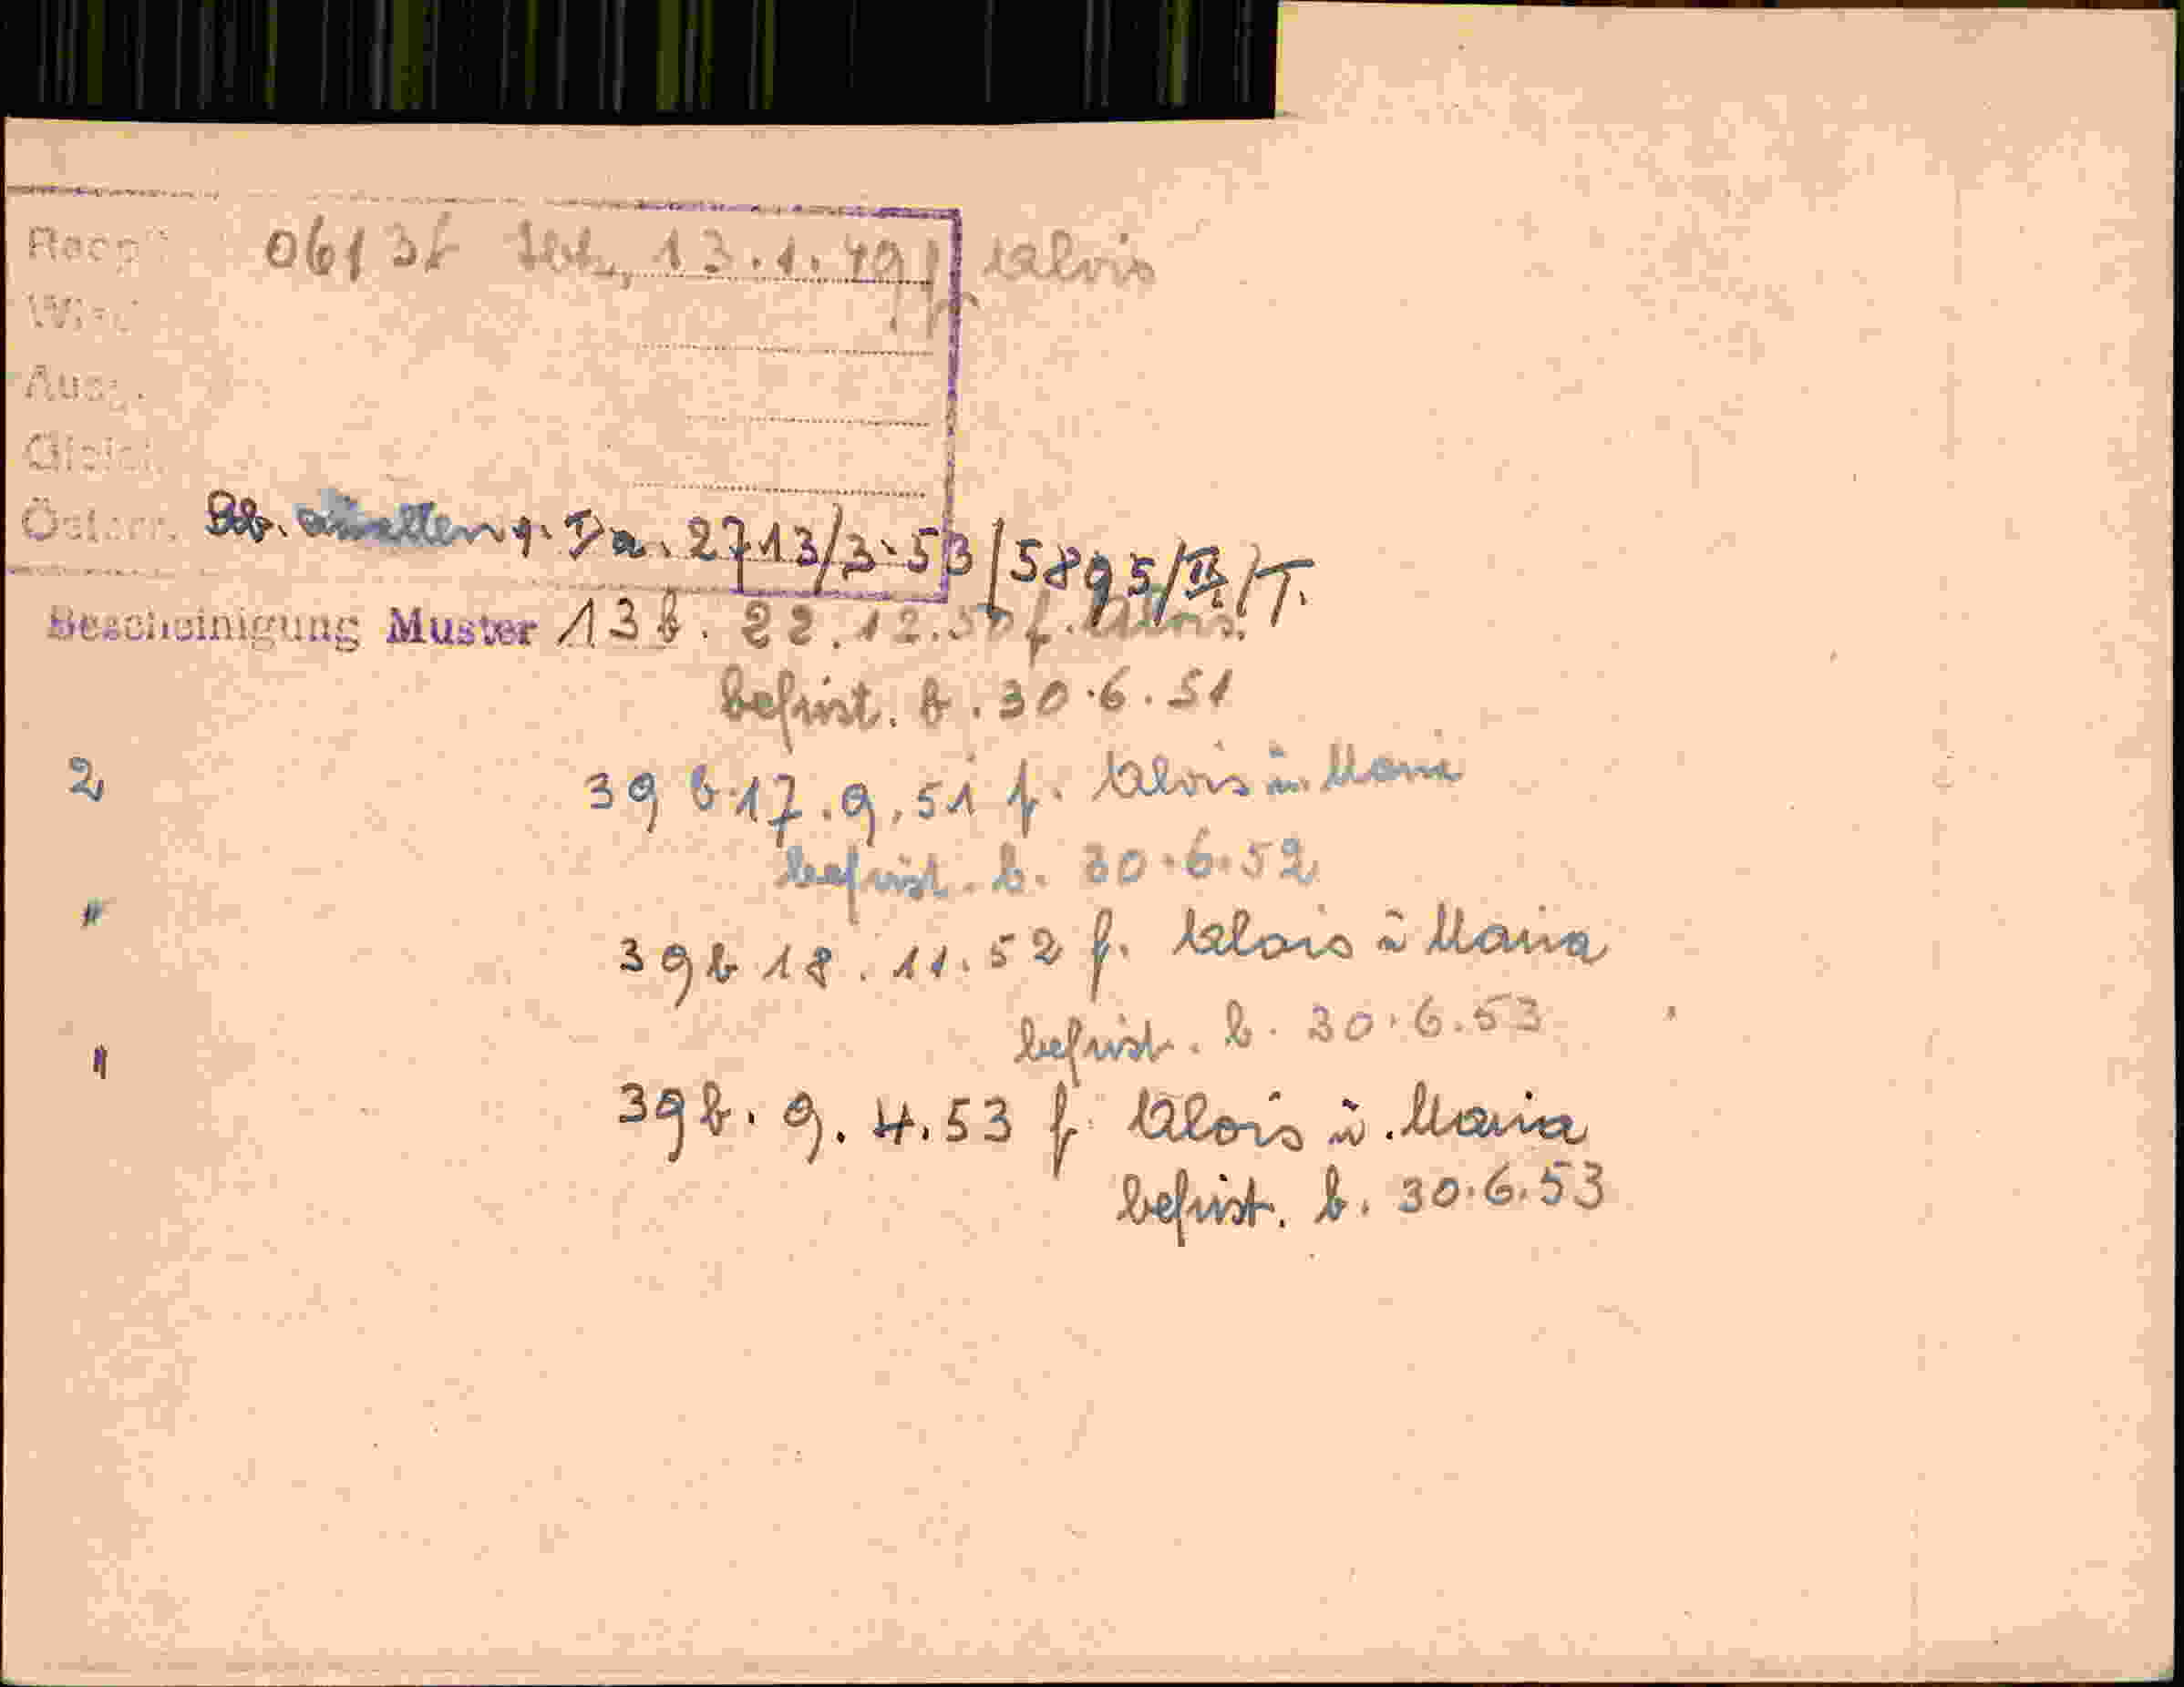 Ausg.
Österr. 2713/3.53/5895/II/T.
Bescheinigung Muster 13b. 22.12.50 f. Alois.
befrist. b. 30.6.51
2 39 b 17.9.51 f. Alois u. Maria
befrist. b. 30.6.52
" 39 b 18.11.52 f. Alois u Maria
befrist. b. 30.6.53
" 39b. 9.4.53 f. Alois u. Maria
befrist. b. 30.6.53